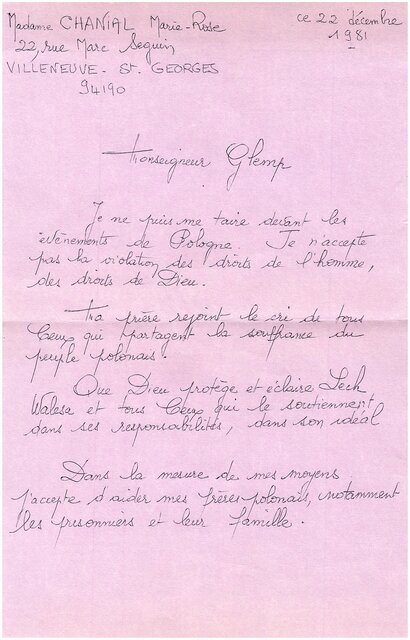 Madame CHANIAL Marie-Rose
22, rue Marc Seguin
VILLENEUVE - St. GEORGES
94190
ce 22 décembre
1981
Monseigneur Glemp
Je ne puis me taire devant les
évènements de Pologne. Je n'accepte
pas la violation des droits de l'homme,
des droits de Dieu.
Ma prière rejoint le cri de tous
Ceux qui partagent la souffrance du
peuple polonais.
Que Dieu protège et éclaire Lech
Walesa et tous Ceux qui le soutiennent
dans ses responsabilités, dans son idéal
Dans la mesure de mes moyens
j'accepte d'aider mes frères polonais, notamment
les prisonniers et leur famille.